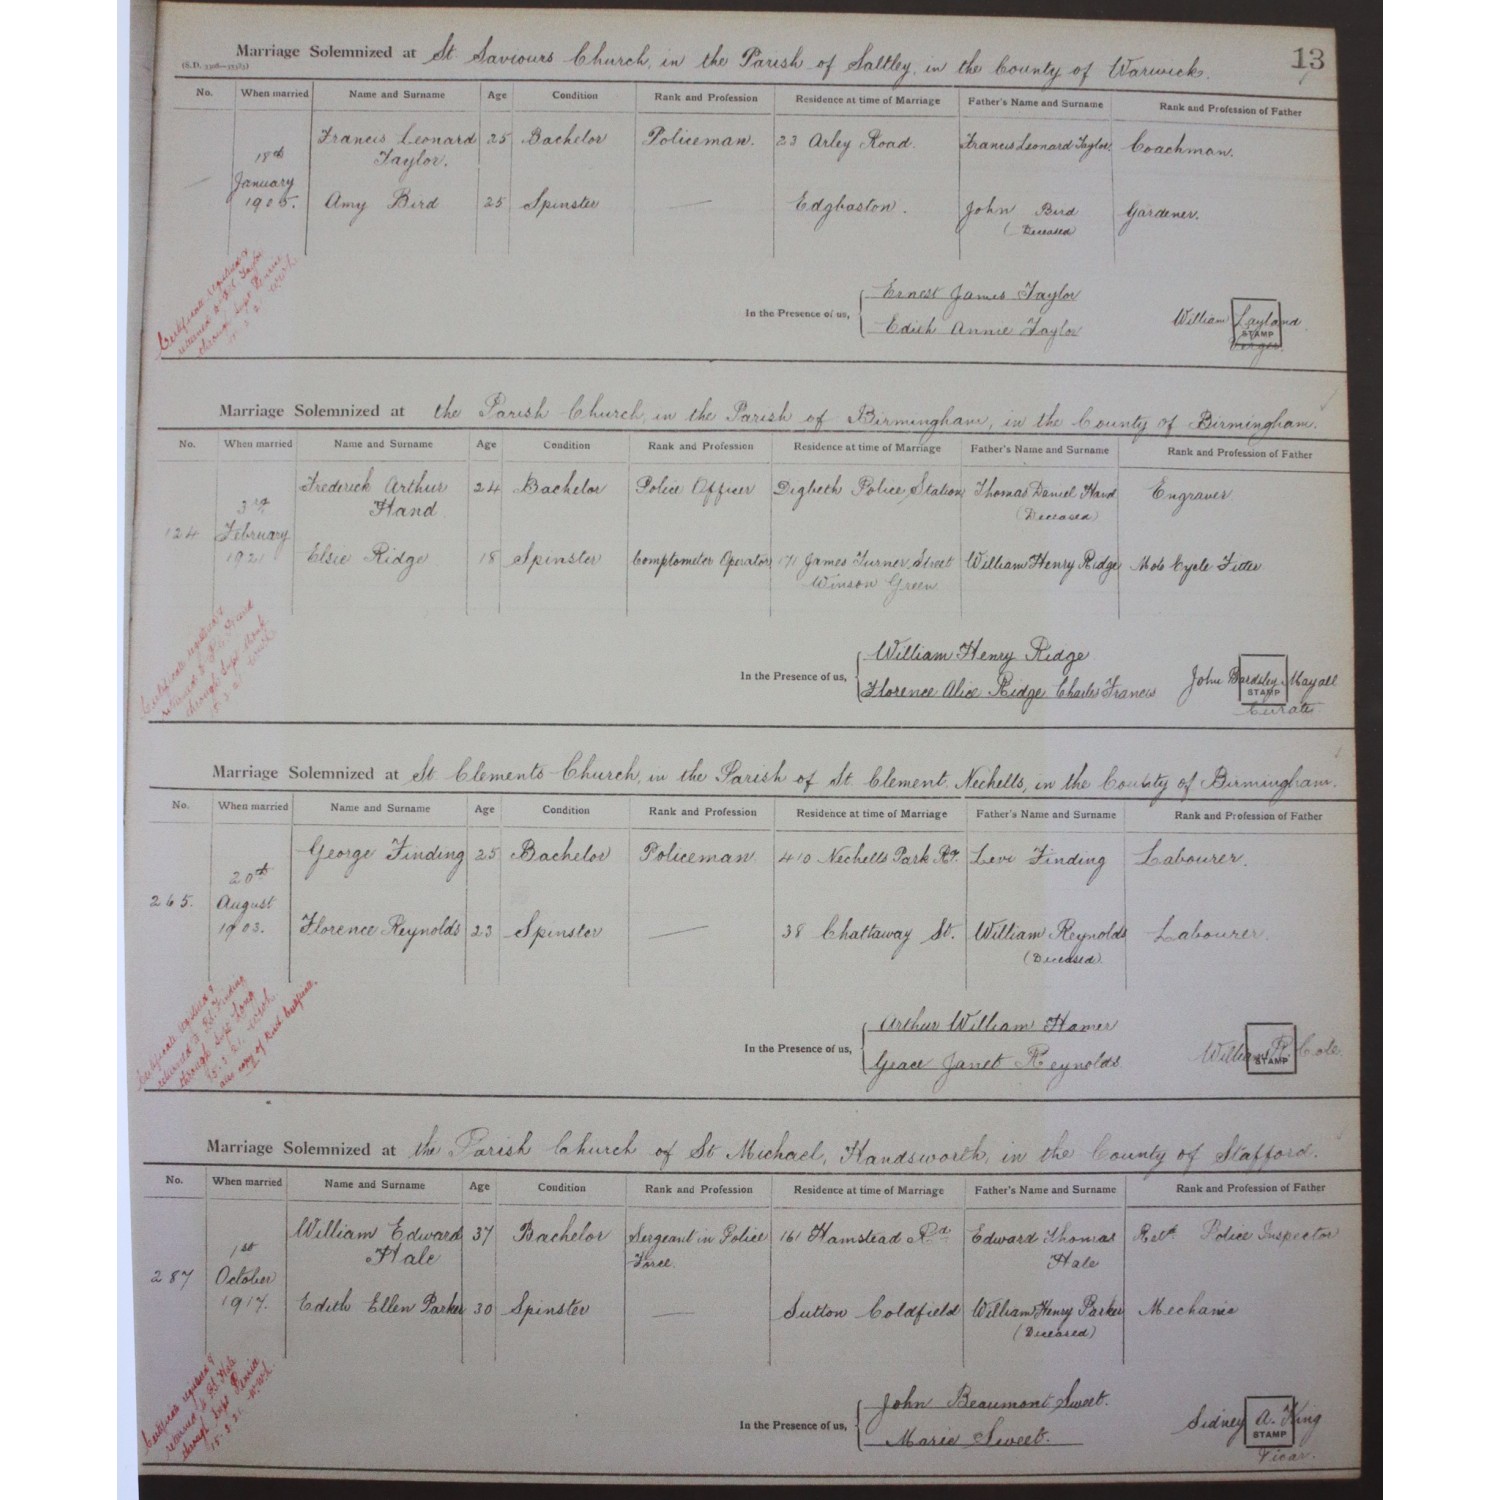 13
Marriage Solemnized at St. Saviours Church, in the Parish of Saltley, in the County of Warwick.
No. When married Name and Surname Age Condition Rank and Profession Residence at time of Marriage Father's Name and Surname Rank and Profession of Father
Francis Leonard 25 Bachelor Policeman. 23 Arley Road. Francis Leonard Taylor Coachman.
18th Taylor.
January
1905. Amy Bird 25 Spinster — Edgbaston. John Bird Gardener.
(Deceased)
Certificate registered &
returned to Taylor
through Supt
Ernest James Taylor
In the Presence of us, William Layland
Edith Annie Taylor STAMP
Marriage Solemnized at the Parish Church, in the Parish of Birmingham, in the County of Birmingham.
No. When married Name and Surname Age Condition Rank and Profession Residence at time of Marriage Father's Name and Surname Rank and Profession of Father
Frederick Arthur 24 Bachelor Police Officer Digbeth Police Station Thomas Daniel Hand Engraver
3rd Hand (Deceased)
124 February
1921 Elsie Ridge 18 Spinster Comptometer Operator 171 James Turner Street William Henry Ridge Moto Cycle Fitter
Winson Green
Certificate registered &
returned to Hand
through Supt
15.3.21
William Henry Ridge
In the Presence of us, John Bardsley Mayall
Florence Alice Ridge Charles Francis STAMP
Curate
Marriage Solemnized at St. Clements Church, in the Parish of St. Clement Nechells, in the County of Birmingham.
No. When married Name and Surname Age Condition Rank and Profession Residence at time of Marriage Father's Name and Surname Rank and Profession of Father
George Finding 25 Bachelor Policeman 410 Nechells Park Rd. Levi Finding Labourer.
20th
265. August
1903. Florence Reynolds 23 Spinster — 38 Chattaway St. William Reynolds Labourer.
(Deceased)
Certificate registered &
returned to Finding
through Supt
15.3.21.
also copy of Birth Certificate.
Arthur William Hamer
In the Presence of us, William R. Cole
Grace Janet Reynolds STAMP
Marriage Solemnized at the Parish Church of St Michael, Handsworth, in the County of Stafford.
No. When married Name and Surname Age Condition Rank and Profession Residence at time of Marriage Father's Name and Surname Rank and Profession of Father
William Edward 37 Bachelor Sergeant in Police 161 Hamstead Rd. Edward Thomas Retd Police Inspector
1st Hale Force. Hale
287 October
1917. Edith Ellen Parker 30 Spinster — Sutton Coldfield William Henry Parker Mechanic
(Deceased)
Certificate registered &
returned to Hale
through Supt
15.3.21.
John Beaumont Sweet.
In the Presence of us, Sidney A. King
Marie Sweet. STAMP
Vicar.